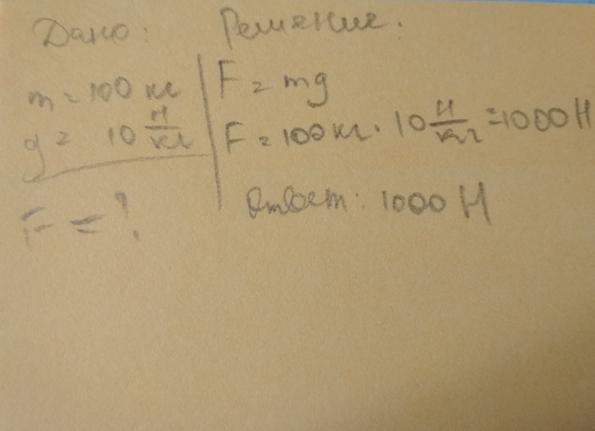 Дано:
Решение.
m = 100 кг
g = 10 Н/кг
F = ?
F = mg
F = 100 кг · 10 Н/кг = 1000 Н
Ответ: 1000 Н